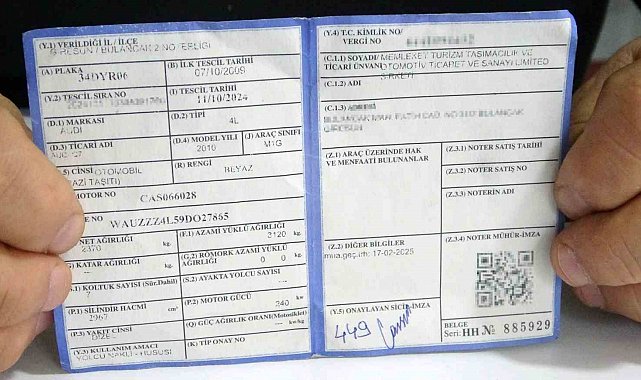 (Y.1) VERİLDİĞİ İL / İLÇE
GİRESUN / BULANCAK 2.NOTERLİĞİ
(A) PLAKA
34DYR06
(B) İLK TESCİL TARİHİ
07/10/2009
(Y.2) TESCİL SIRA NO
(I) TESCİL TARİHİ
11/10/2024
(D.1) MARKASI
AUDI
(D.2) TİPİ
4L
(D.3) TİCARİ ADI
(D.4) MODEL YILI
2010
(J) ARAÇ SINIFI
M1G
5) CİNSİ
OTOMOBİL
AZİ TAŞITI)
(R) RENGİ
BEYAZ
MOTOR NO
CAS066028
E NO
WAUZZZ4L59DO27865
NET AĞIRLIĞI
2370 kg.
(F.1) AZAMİ YÜKLÜ AĞIRLIĞI
2120 kg.
G) KATAR AĞIRLIĞI
--- kg.
(G.2) RÖMORK AZAMİ YÜKLÜ AĞIRLIĞI
0 0 kg.
S.1) KOLTUK SAYISI (Sür.Dahil)
7
(S.2) AYAKTA YOLCU SAYISI
---
(P.1) SİLİNDİR HACMİ
2967 cm³
(P.2) MOTOR GÜCÜ
240 kw
(P.3) YAKIT CİNSİ
DİZEL
(Q) GÜÇ AĞIRLIK ORANI (Motosiklet)
--- kw/kg
(Y.3) KULLANIM AMACI
YOLCU NAKLİ - HUSUSİ
(K) TİP ONAY NO
(Y.4) T.C. KİMLİK NO/
VERGİ NO
(C.1.1) SOYADI/
TİCARİ ÜNVANI
MEMLEKET TURİZM TAŞIMACILIK VE
OTOMOTİV TİCARET VE SANAYİ LİMİTED
ŞİRKETİ
(C.1.2) ADI
(C.1.3) ADRESİ
(Z.1) ARAÇ ÜZERİNDE HAK
VE MENFAATİ BULUNANLAR
(Z.3.1) NOTER SATIŞ TARİHİ
(Z.3.2) NOTER SATIŞ NO
(Z.3.3) NOTERİN ADI
(Z.2) DİĞER BİLGİLER
mua.geç.trh: 17-02-2025
(Z.3.4) NOTER MÜHÜR-İMZA
(Y.5) ONAYLAYAN SİCİL-İMZA
449
BELGE
Seri: HH № 885929